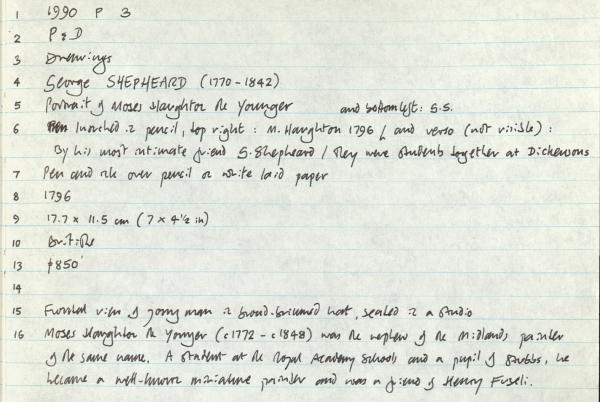 1 1990 P 3
2 P & D
3 Drawings
4 George SHEPHEARD (1770-1842)
5 Portrait of Moses Haughton the Younger and bottom left: G.S.
6 Inscribed in pencil, top right: M. Haughton 1796 / and verso (not visible):
By his most intimate friend G. Shepheard / They were students together at Dickensons
7 Pen and ink over pencil on white laid paper
8 1796
9 17.7 x 11.5 cm (7 x 4 1/2 in)
10 British
13 £850
14
15 Frontal view of young man in broad-brimmed hat, seated in a studio
16 Moses Haughton the Younger (c1772 - c1848) was the nephew of the Midlands painter
of the same name. A student at the Royal Academy Schools and a pupil of Stubbs, he
became a well-known miniature painter and was a friend of Henry Fuseli.